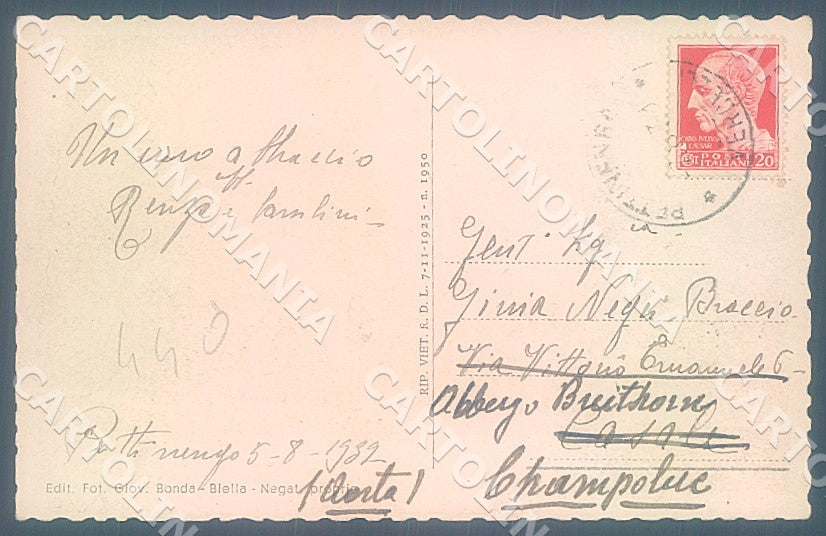 Un caro abbraccio
aff.
Renza e bambini -
440
Pettinengo 5-8-1932
Edit. Fot. Giov. Bonda - Biella - Negat. propria
RIP. VIET. R. D. L. 7-11-1925 - n. 1950
CAIVS IVLIVS
CAESAR
POSTE
ITALIANE 20
PETTINENGO
VERCELLI
Gent. Sig.
Ginia Negri Braccio
Via Vittorio Emanuele 6 -
Albergo Breithorn
Casale
Champoluc
(Aosta)
CARTOLINOMANIA
CARTOLINOMANIA
CARTOLINOMANIA
CARTOLINOMANIA
CARTOLINOMANIA
CARTOLINOMANIA